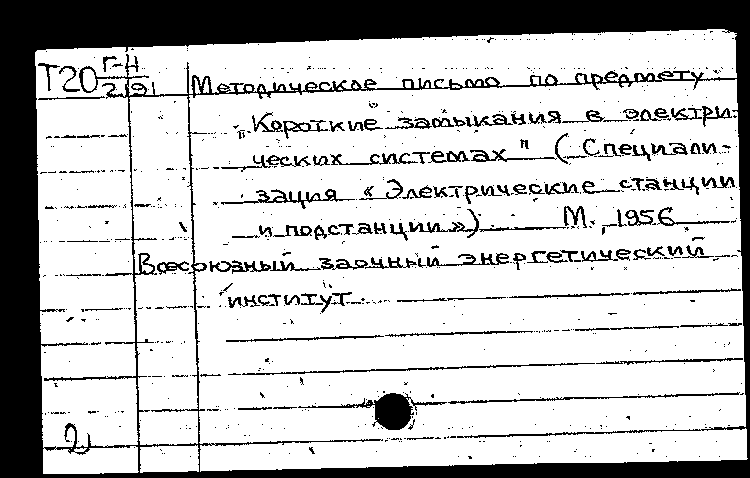 Т20 Г-Н
2191
Методическое письмо по предмету
„Короткие замыкания в электри-
ческих системах" (Специали-
зация «Электрические станции
и подстанции») М., 1956
Всесоюзный заочный энергетический
институт.
2